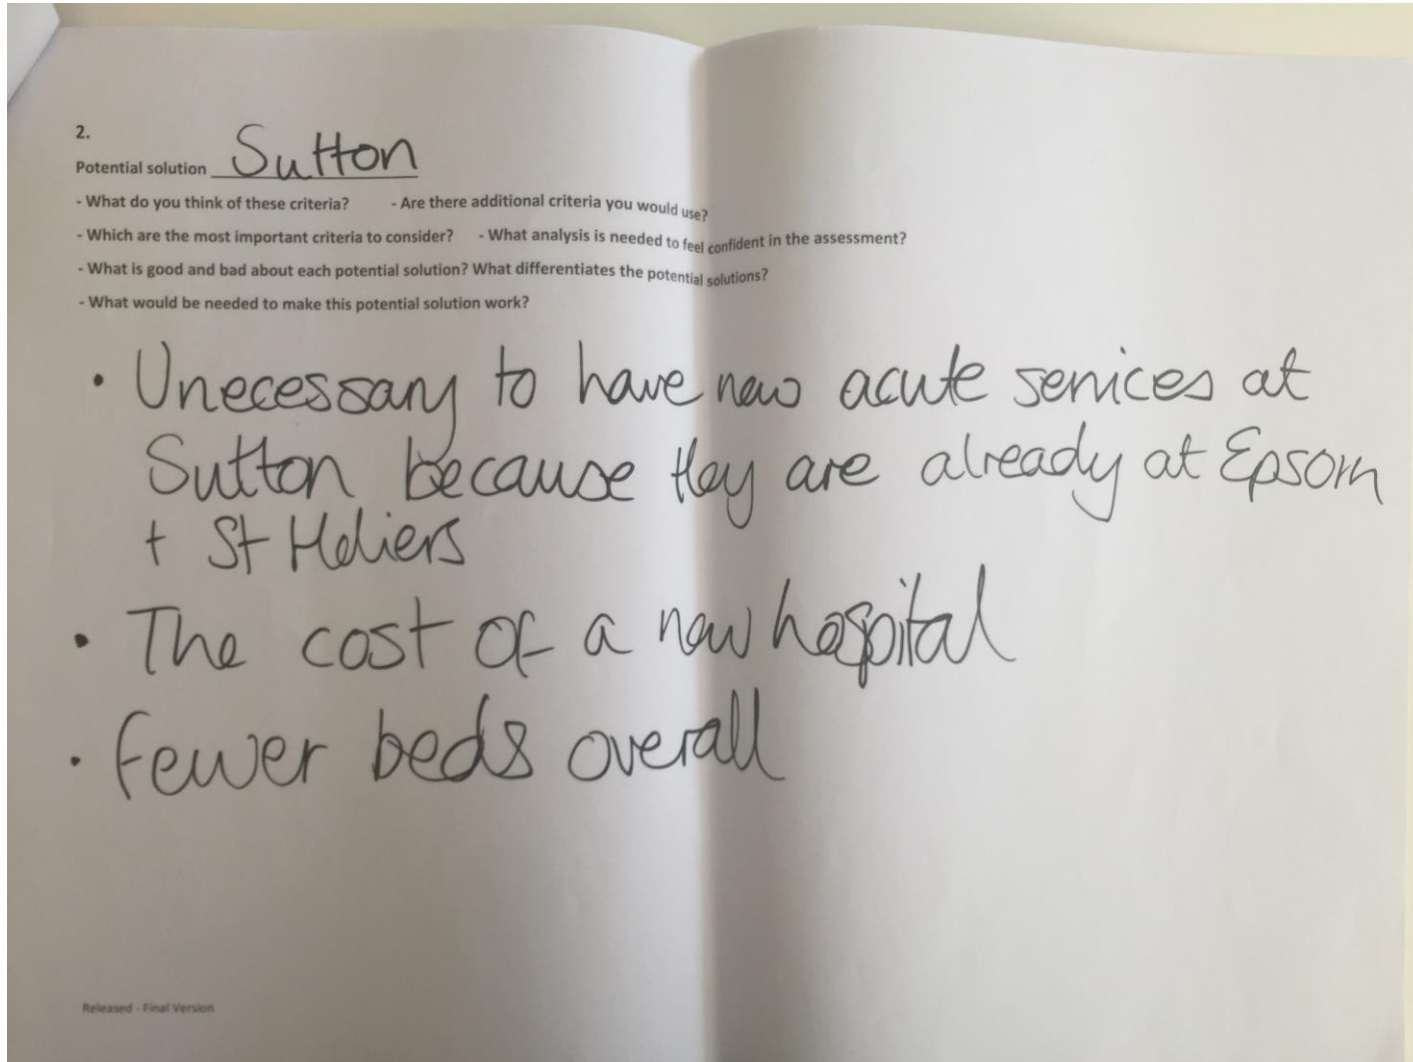 2.
Potential solution Sutton
- What do you think of these criteria? - Are there additional criteria you would use?
- Which are the most important criteria to consider? - What analysis is needed to feel confident in the assessment?
- What is good and bad about each potential solution? What differentiates the potential solutions?
- What would be needed to make this potential solution work?
• Unecessary to have new acute services at
Sutton because they are already at Epsom
+ St Heliers
• The cost of a new hospital
• Fewer beds overall
Released - Final Version